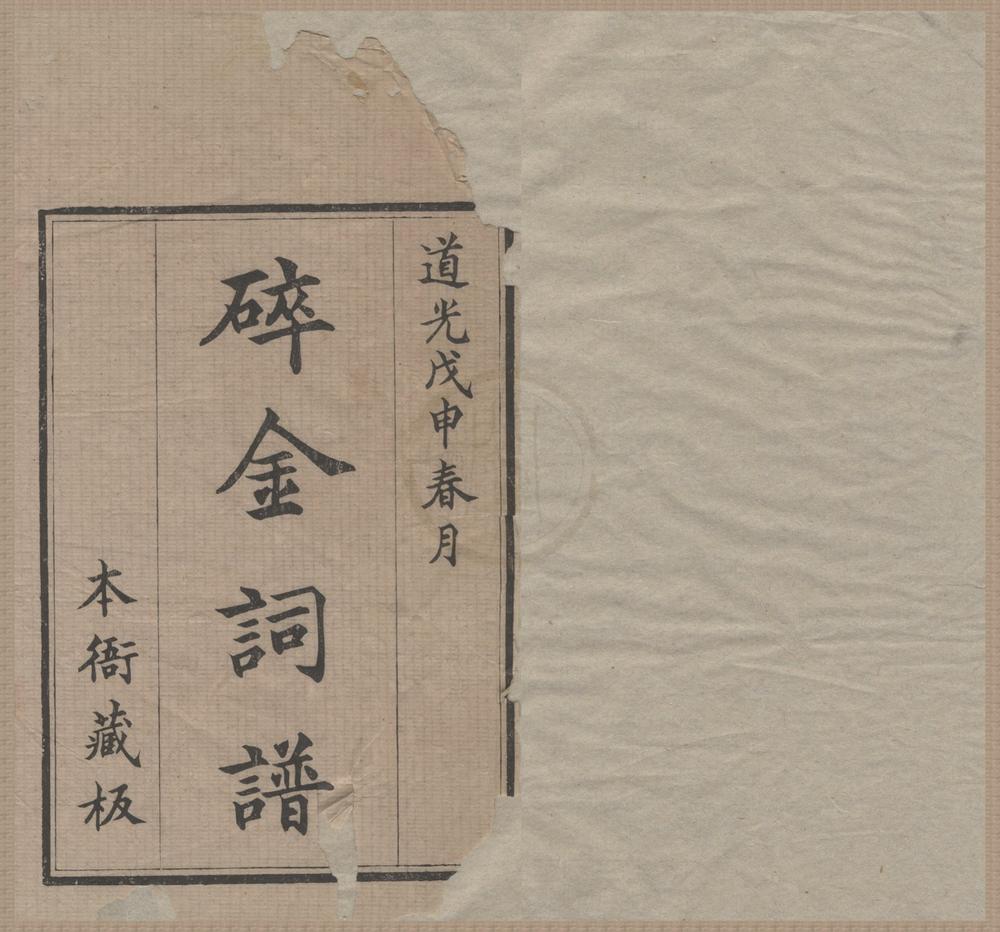 道光戊申春月
碎金詞譜
本衙藏板